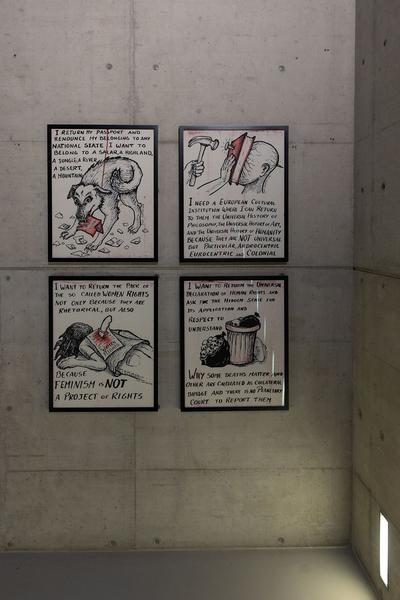 I RETURN MY PASSPORT AND
RENOUNCE MY BELONGING TO ANY
NATIONAL STATE. I WANT TO
BELONG TO A SALAR, A HIGHLAND,
A JUNGLE, A RIVER,
A DESERT,
A MOUNTAIN
I NEED A EUROPEAN CULTURAL
INSTITUTION WHERE I CAN RETURN
TO THEM THE UNIVERSAL HISTORY OF
PHILOSOPHY, THE UNIVERSAL HISTORY OF ART,
AND THE UNIVERSAL HISTORY OF HUMANITY
BECAUSE THEY ARE NOT UNIVERSAL
BUT PARTICULAR, ANDROCENTRIC
EUROCENTRIC AND COLONIAL
I WANT TO RETURN THE PACK OF
THE SO CALLED WOMEN RIGHTS
NOT ONLY BECAUSE THEY ARE
RHETORICAL, BUT ALSO
BECAUSE
FEMINISM IS NOT
A PROJECT OF RIGHTS
I WANT TO RETURN THE UNIVERSAL
DECLARATION OF HUMAN RIGHTS AND
ASK FOR THE MINIMUM STATE FOR
ITS APPLICATION AND
RESPECT TO
UNDERSTAND
WHY SOME DEATHS MATTER AND
OTHER ARE CALCULATED AS COLLATERAL
DAMAGE AND THERE IS NO PLANETARY
COURT TO REPORT THEM